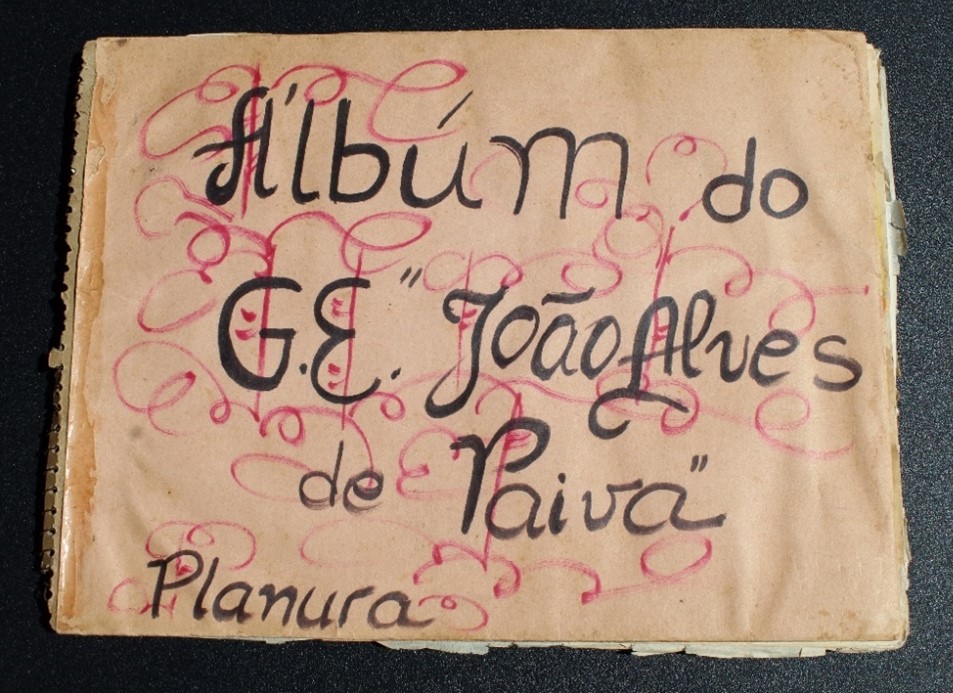 Álbúm do
G.E. "João Alves
de Paiva"
Planura